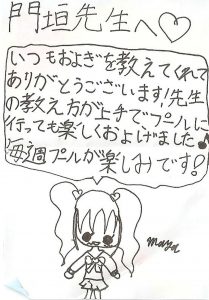 門垣先生へ♡
いつもおよぎを教えてくれて
ありがとうございます!先生
の教え方が上手でプールに
行っても楽しくおよげました♪
毎週プールが楽しみです!
maya